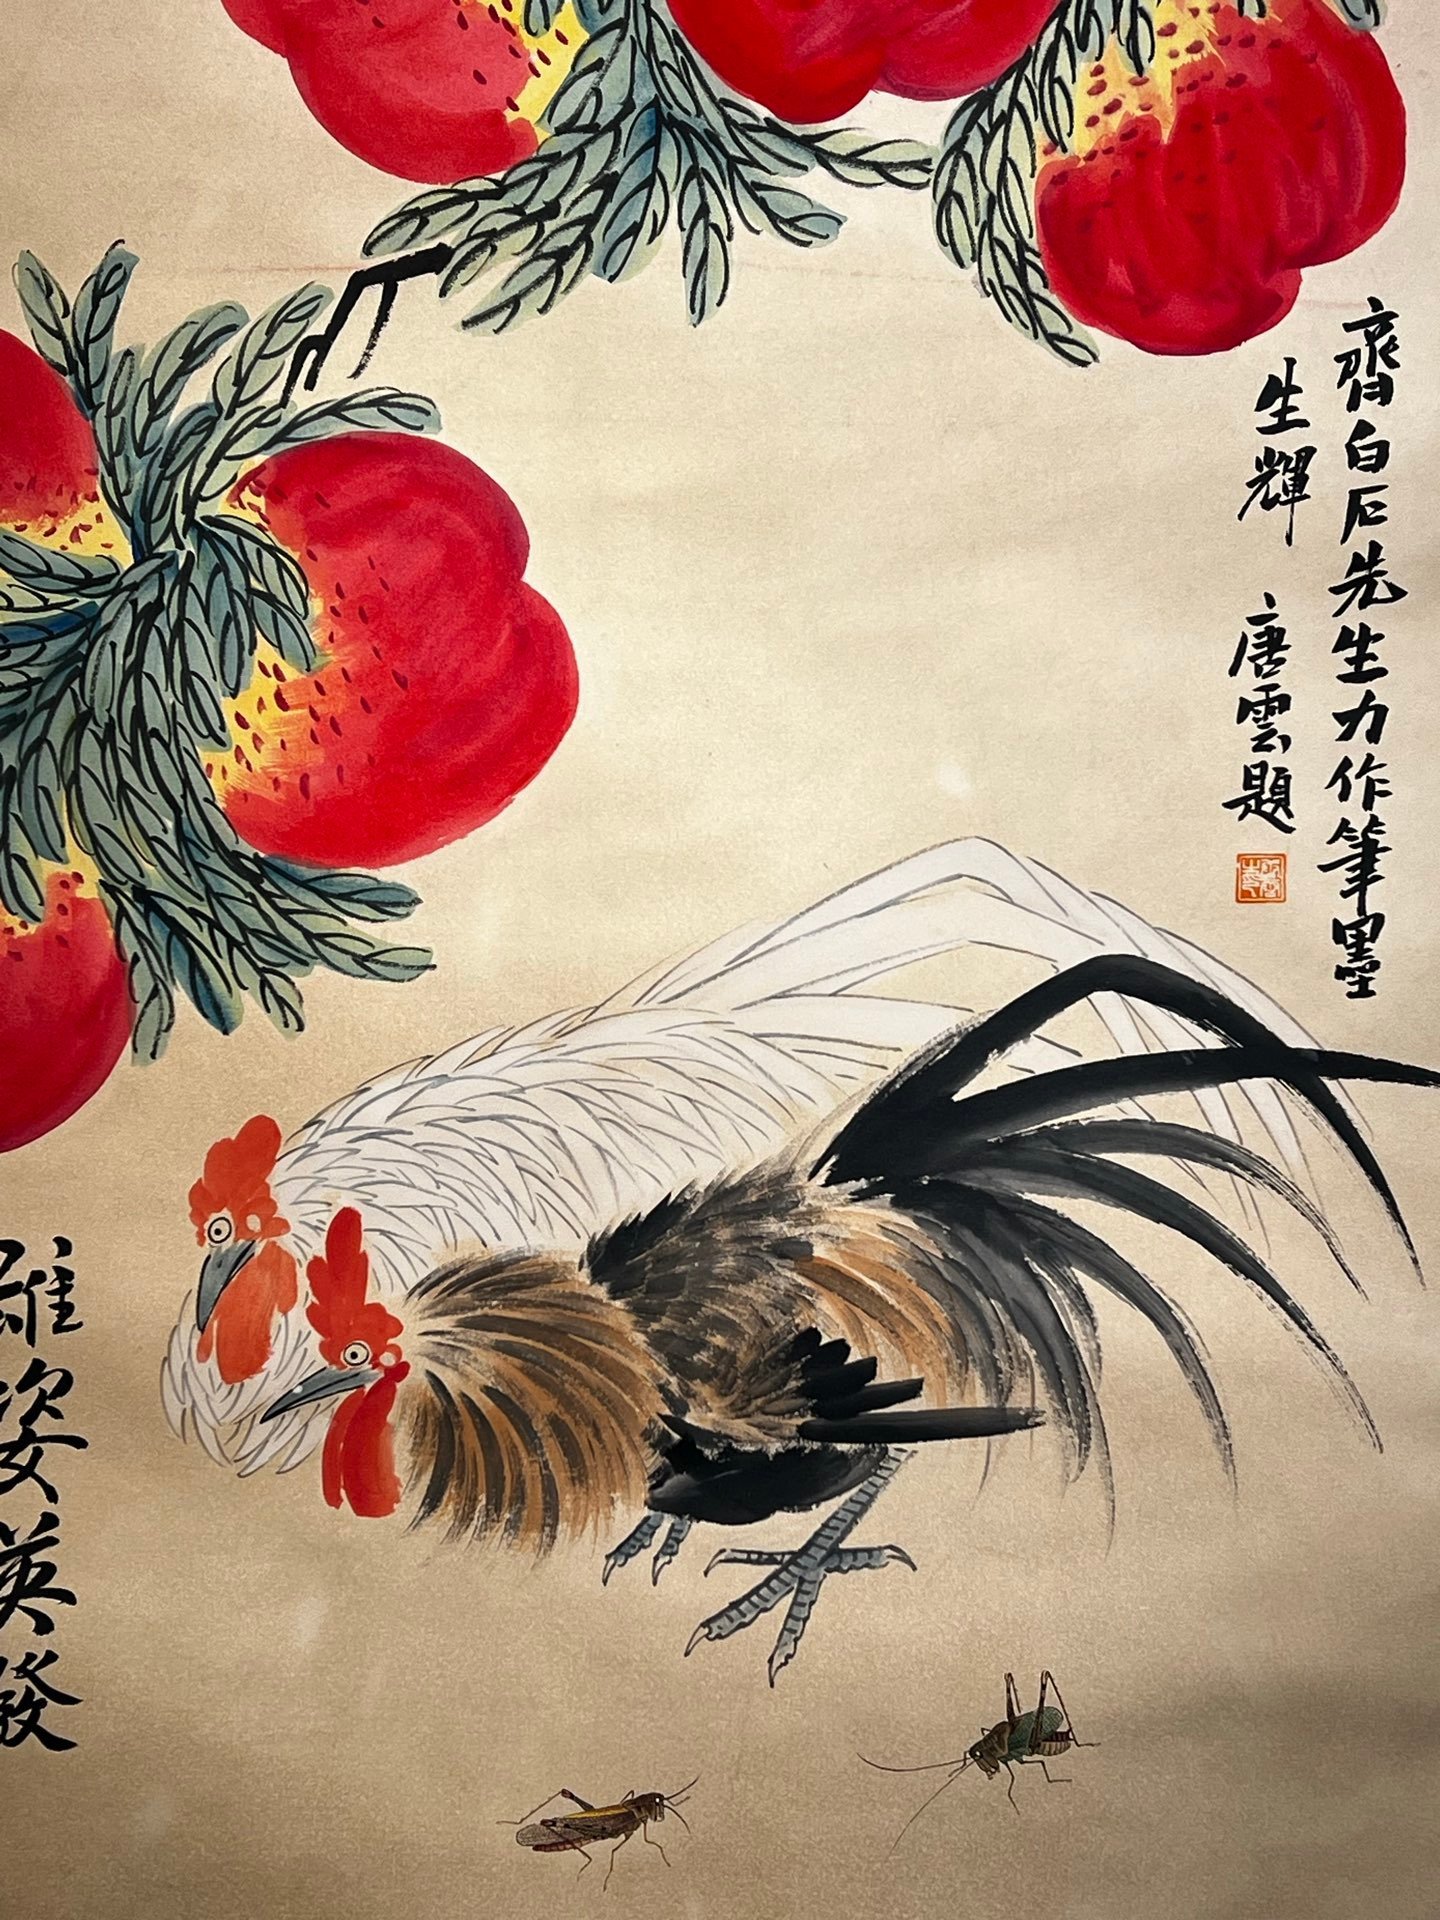 齊白石先生力作筆墨
生輝
唐雲題
雄姿英發